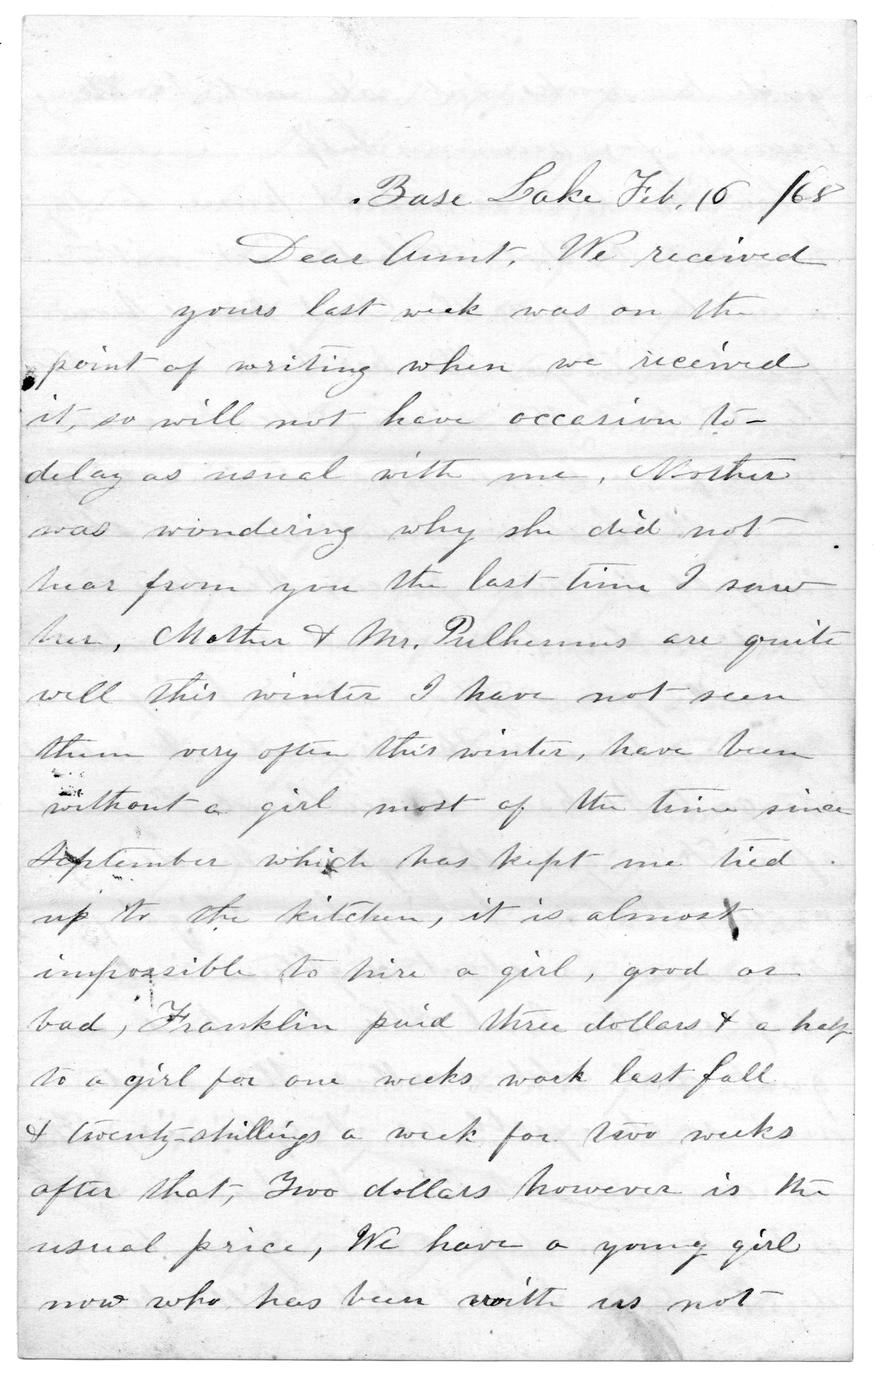 Base Lake Feb. 16 /68
Dear Aunt, We received
yours last week was on the
point of writing when we received
it, so will not have occasion to-
delay as usual with me, Mother
was wondering why she did not
hear from you the last time I saw
her, Mother & Mr. are quite
well this winter I have not seen
them very often this winter, have been
without a girl most of the time since
September which has kept me tied
up to the kitchen, it is almost
impossible to hire a girl, good or
bad, Franklin paid three dollars & a half
to a girl for one weeks work last fall
& twenty-shillings a week for two weeks
after that, Two dollars however is the
usual price, We have a young girl
now who has been with us not